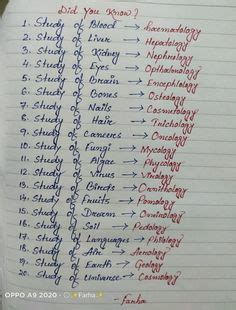 Did You Know?
1. Study of Blood → Haematology
2. Study of Liver → Hepatology
3. Study of Kidney → Nephrology
4. Study of Eyes → Opthamology
5. Study of Brain → Encephilology
6. Study of Bones → Osteology
7. Study of Nails → Cosmetology
8. Study of Hair → Trichology
9. Study of Cancers → Oncology
10. Study of Fungi → Mycology
11. Study of Algae → Phycology
12. Study of Virus → Virology
13. Study of Birds → Ornithology
14. Study of Fruits → Pomology
15. Study of Dream → Orninology
16. Study of Soil → Pedology
17. Study of Languages → Philology
18. Study of Air → Aerology
19. Study of Earth → Geology
20. Study of Universe → Cosmology
- Farha
OPPO A9 2020 · Farha